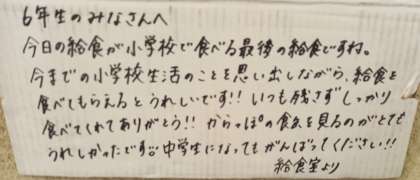 6年生のみなさんへ
今日の給食が小学校で食べる最後の給食ですね。
今までの小学校生活のことを思い出しながら、給食を
食べてもらえるとうれしいです!! いつも残さずしっかり
食べてくれてありがとう!! からっぽの食缶を見るのがとても
うれしかったです。中学生になってもがんばってください!!
給食室より